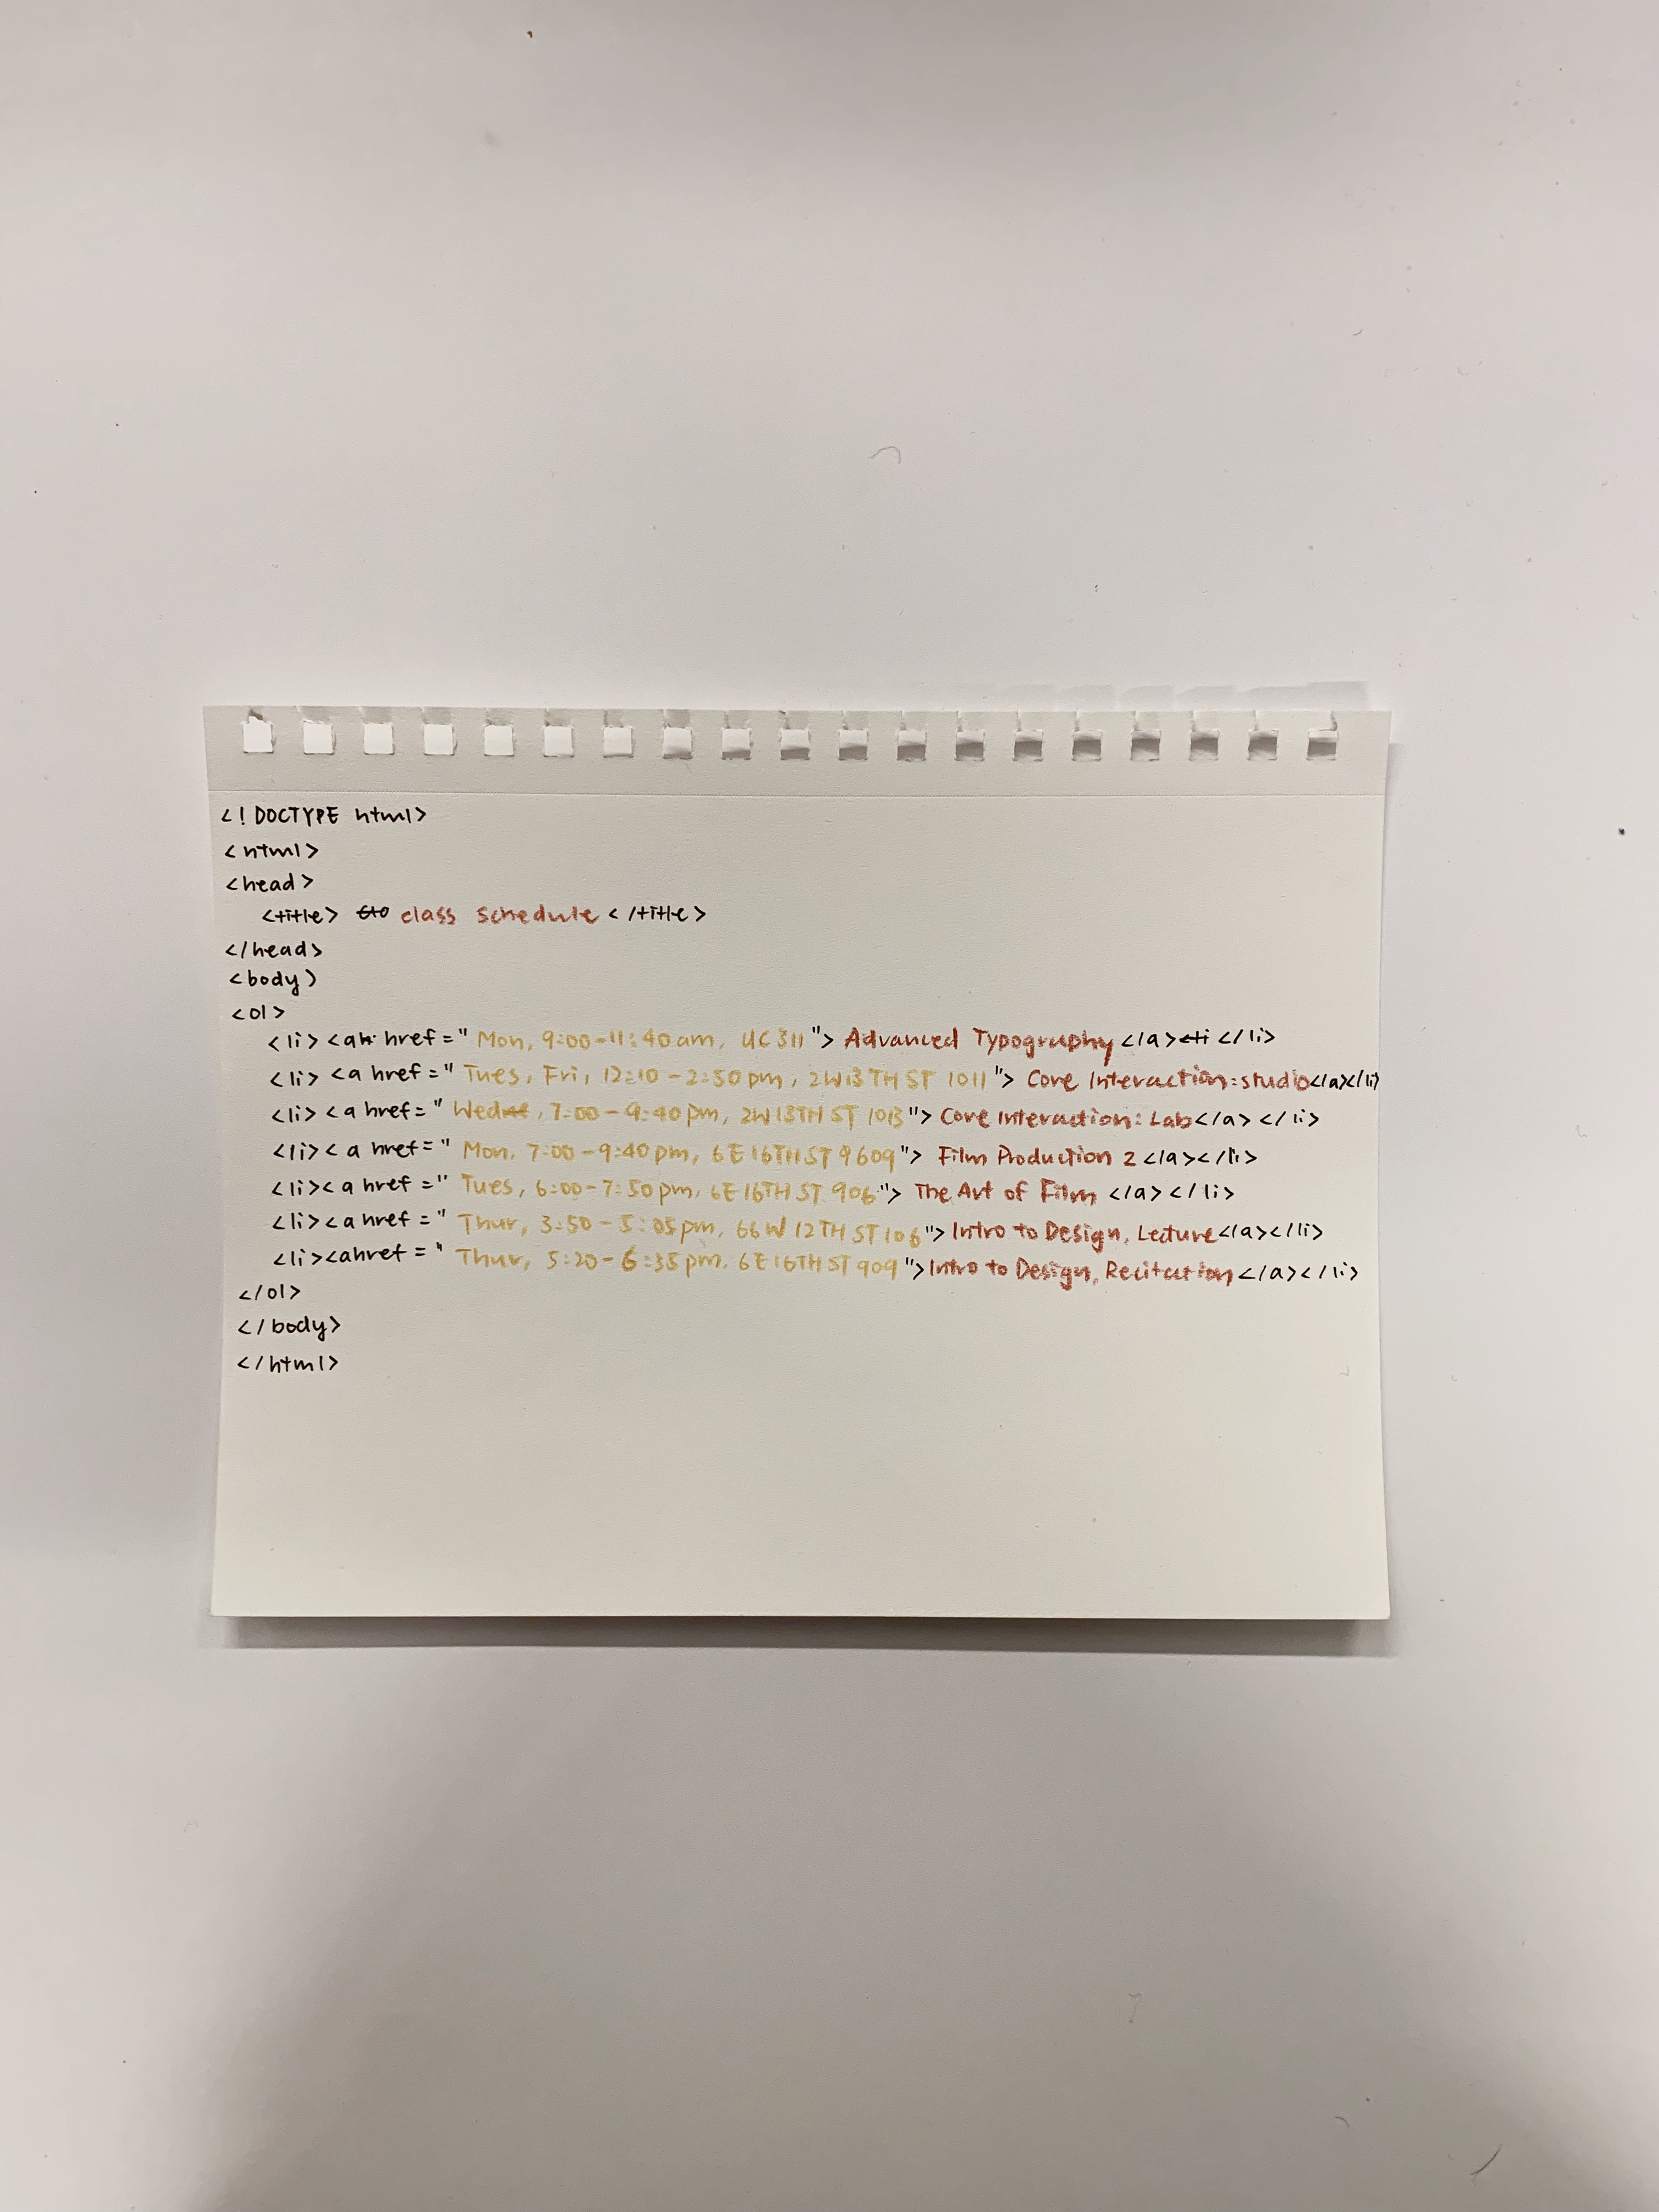 <!DOCTYPE html>
<html>
<head>
<title> class schedule </title>
</head>
<body>
<ol>
<li><a href="Mon, 9:00-11:40am, UC311"> Advanced Typography</a></li>
<li><a href="Tues, Fri, 12:10-2:50pm, 2W13TH ST 1011"> Core Interaction:studio</a></li>
<li><a href="Wed, 7:00-9:40pm, 2W13TH ST 1013"> Core Interaction: Lab</a></li>
<li><a href="Mon, 7:00-9:40pm, 6E16TH ST 9609"> Film Production 2</a></li>
<li><a href="Tues, 6:00-7:50pm, 6E16TH ST 906"> The Art of Film </a></li>
<li><a href="Thur, 3:50-5:05pm, 66W 12TH ST 106">Intro to Design, Lecture</a></li>
<li><ahref="Thur, 5:20-6:35pm, 6E16TH ST 909">Intro to Design, Recitation</a></li>
</ol>
</body>
</html>